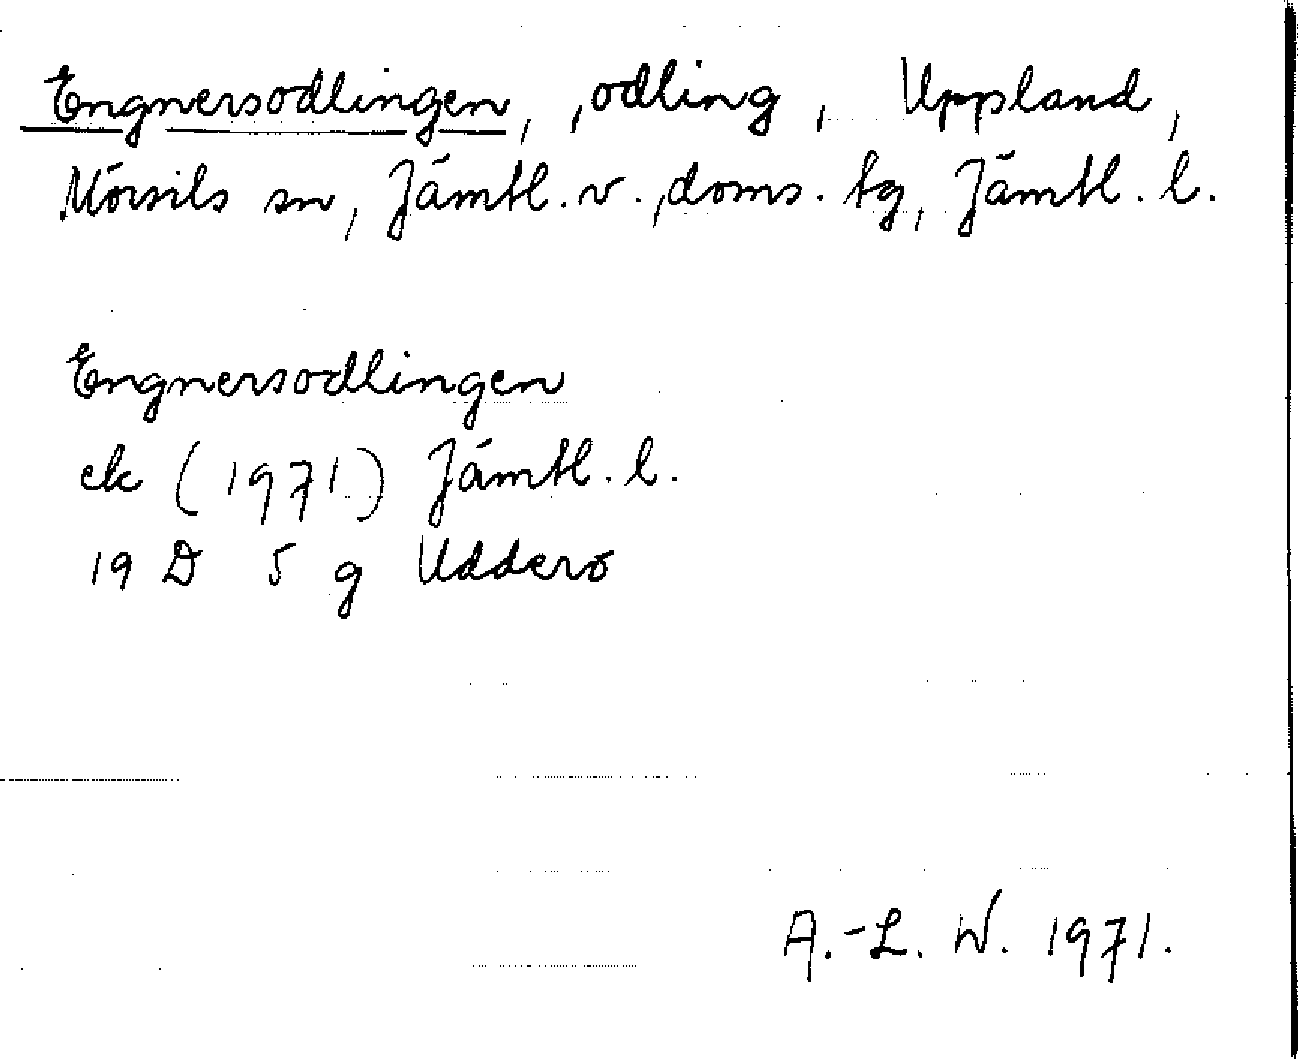 Engnersodlingen, odling, Uppland,
Mörsils sn, Jämtl. v. doms. tg, Jämtl. l.
Engnersodlingen
ek (1971) Jämtl. l.
19 D 5 g Udderö
A.-L. W. 1971.